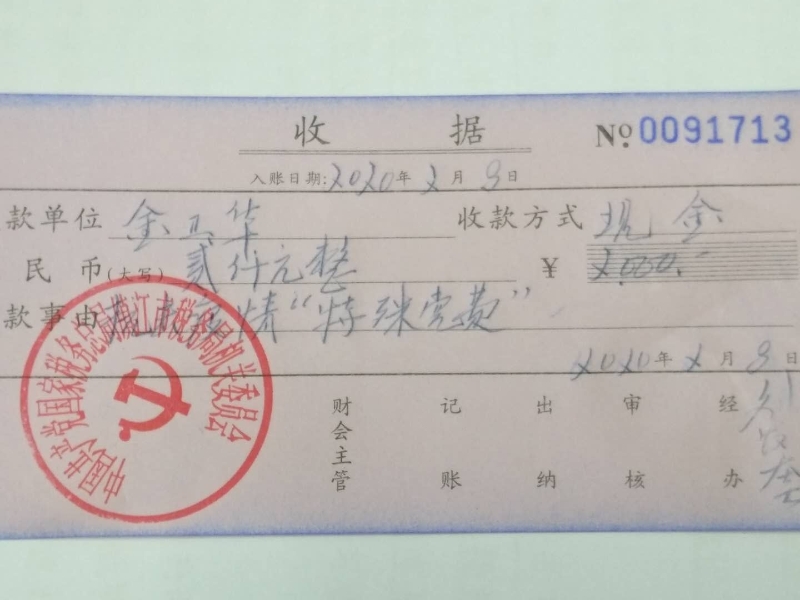 收据
№ 0091713
入账日期: 2020年2月3日
款单位 金玉华 收款方式 现金
民币(大写) 贰仟元整 ¥ 2000.-
款事由 疫情“特殊党费”
2020年2月3日
财会主管 记账 出纳 审核 经办
中国共产党国家税务总局 江市税务局机关委员会